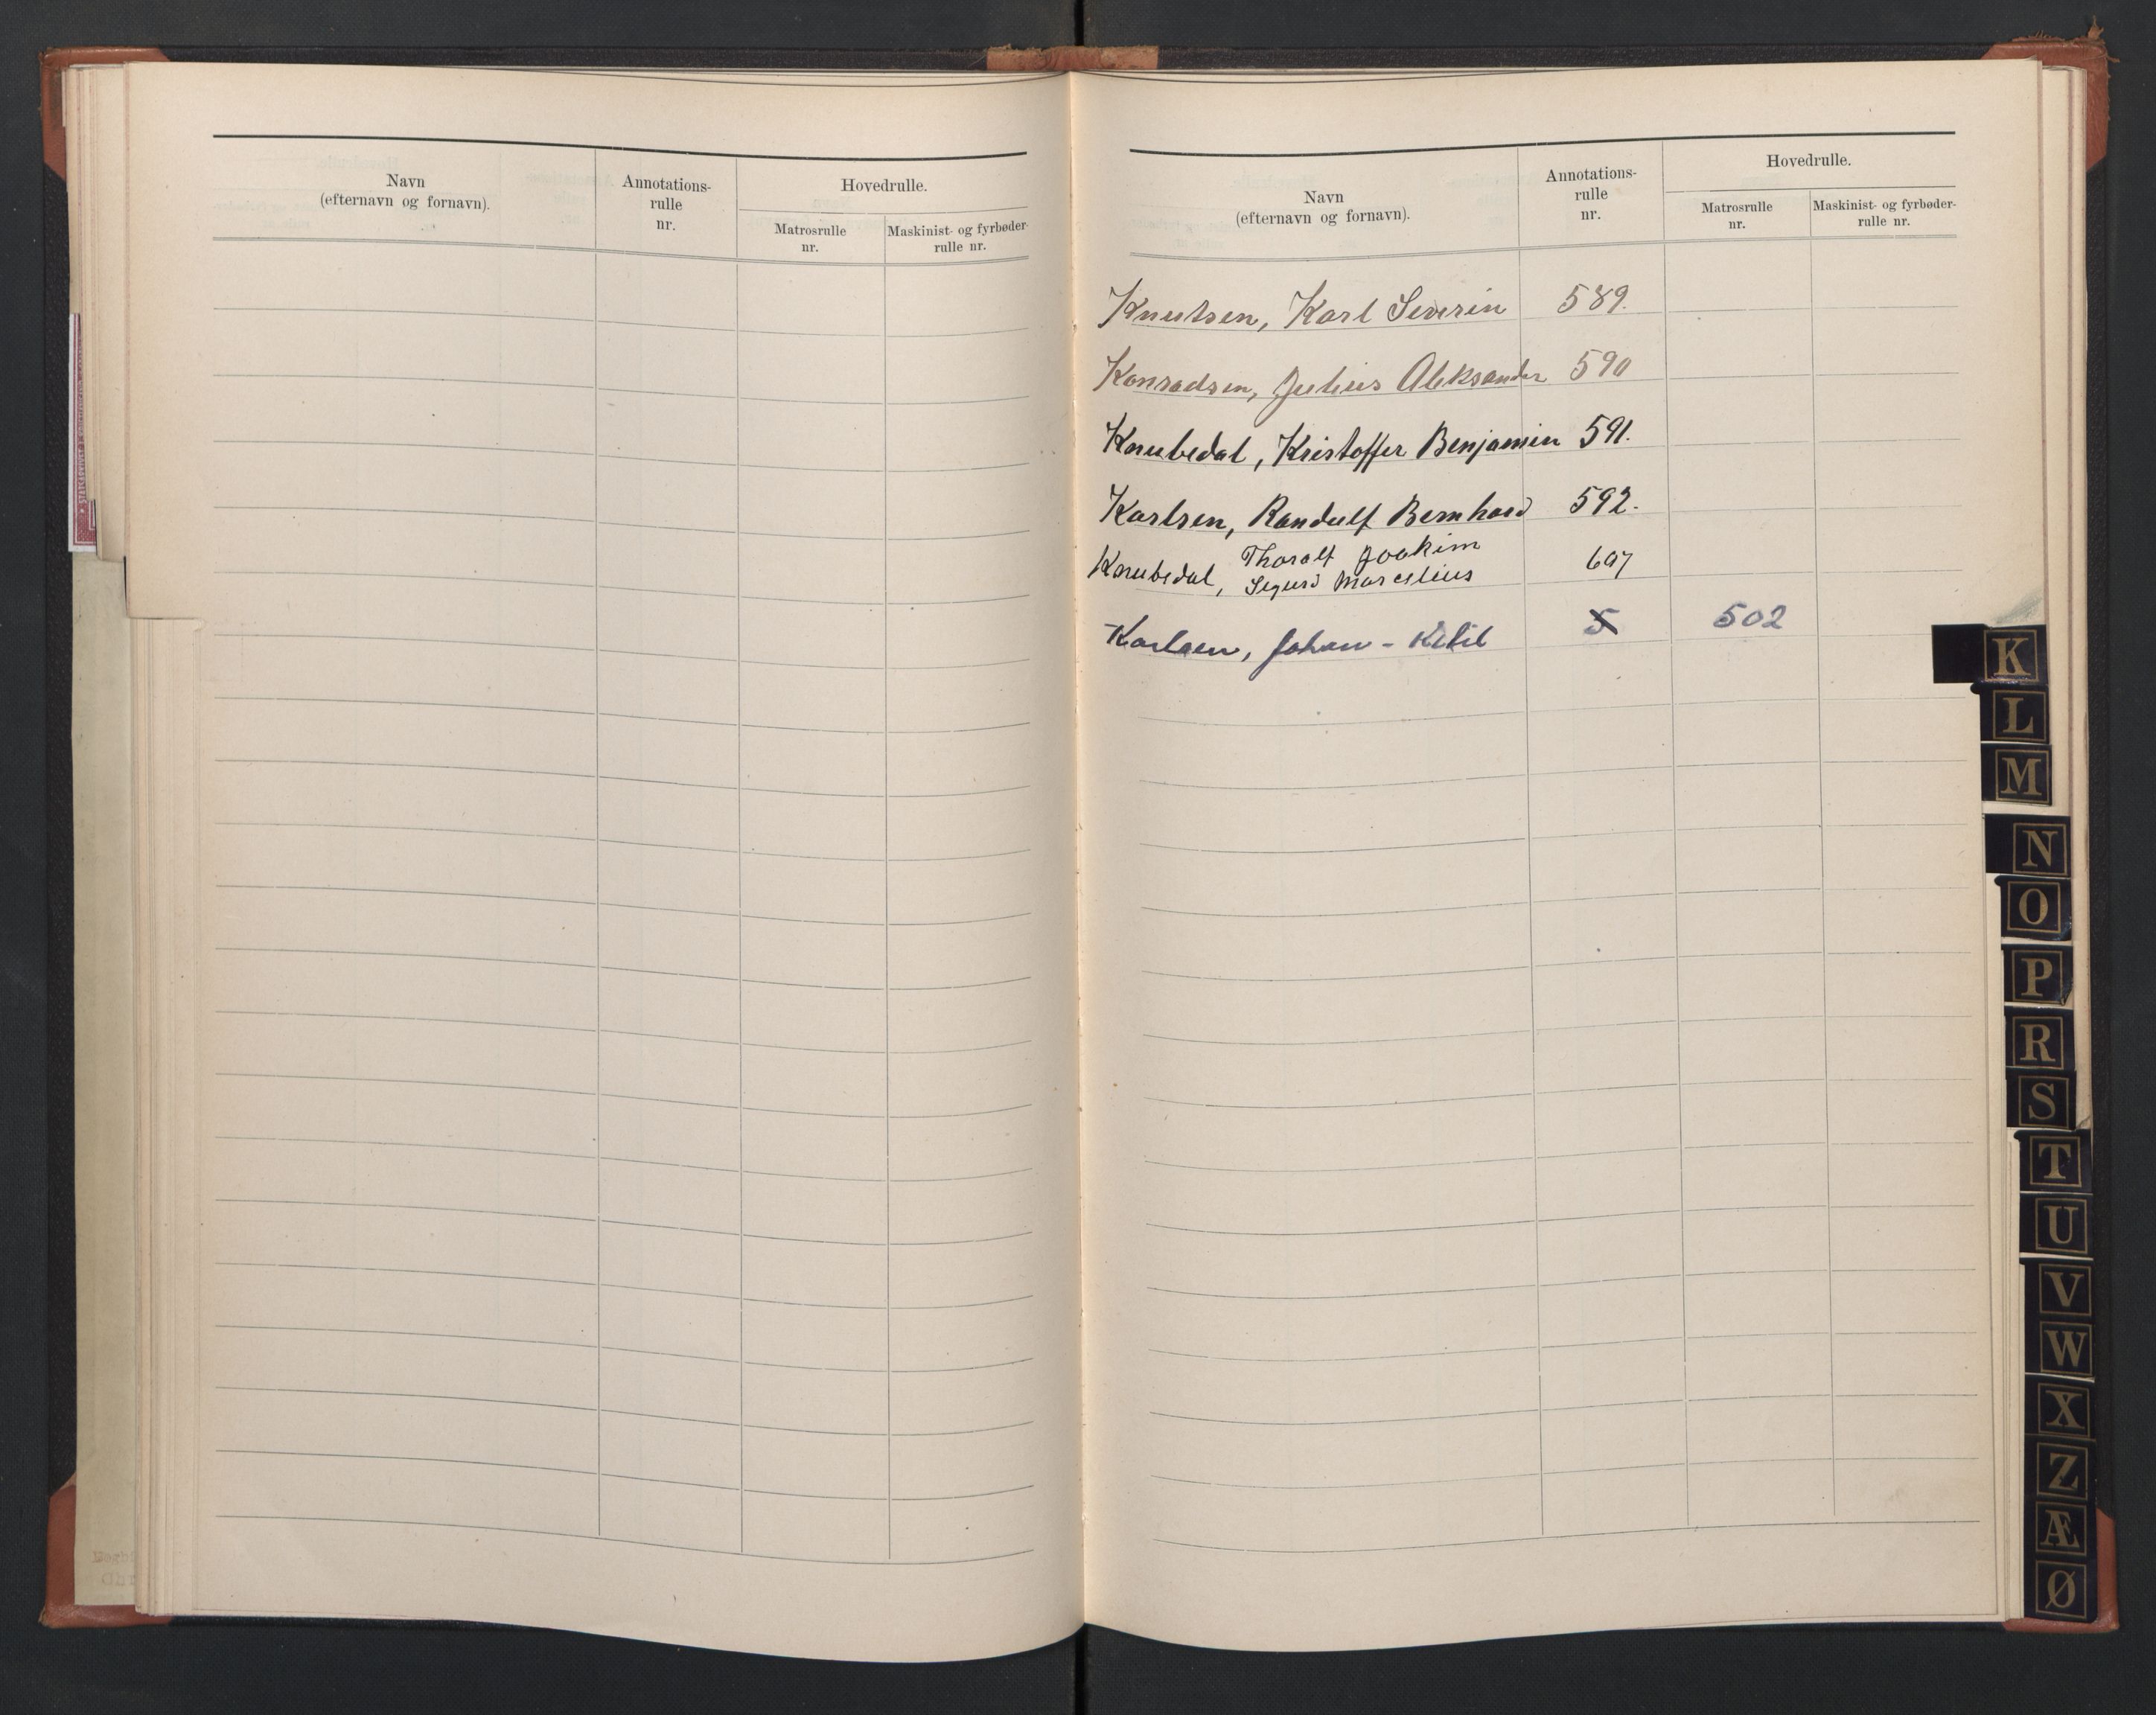 Navn
(efternavn og fornavn).
Annotations-
rulle
nr.
Hovedrulle.
Matrosrulle
nr.
Maskinist- og fyrbøder-
rulle nr.
Navn
(efternavn og fornavn).
Annotations-
rulle
nr.
Hovedrulle.
Matrosrulle
nr.
Maskinist- og fyrbøder-
rulle nr.
Knutsen, Karl Severin 589.
Konradsen, Julius Aleksander 590
Knubedal, Kristoffer Benjamin 591.
Karlsen, Randulf Bernhard 592.
Thoralf Joakim
Knubedal, Sigurd Marcelius 607
Karlsen, Johan - Ketil 5 502
K
L
M
N
O
P
R
S
T
U
V
W
X
Z
Æ
Ø